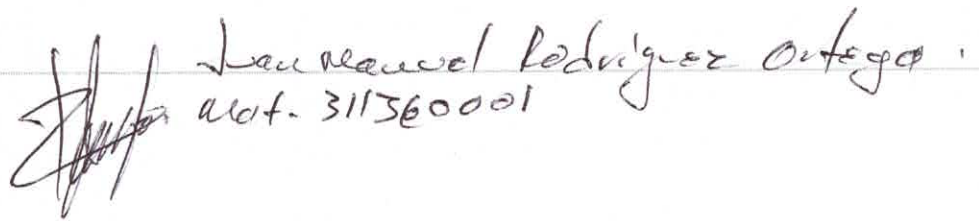 Juan Manuel Rodríguez Ortega.
Mat. 311360001